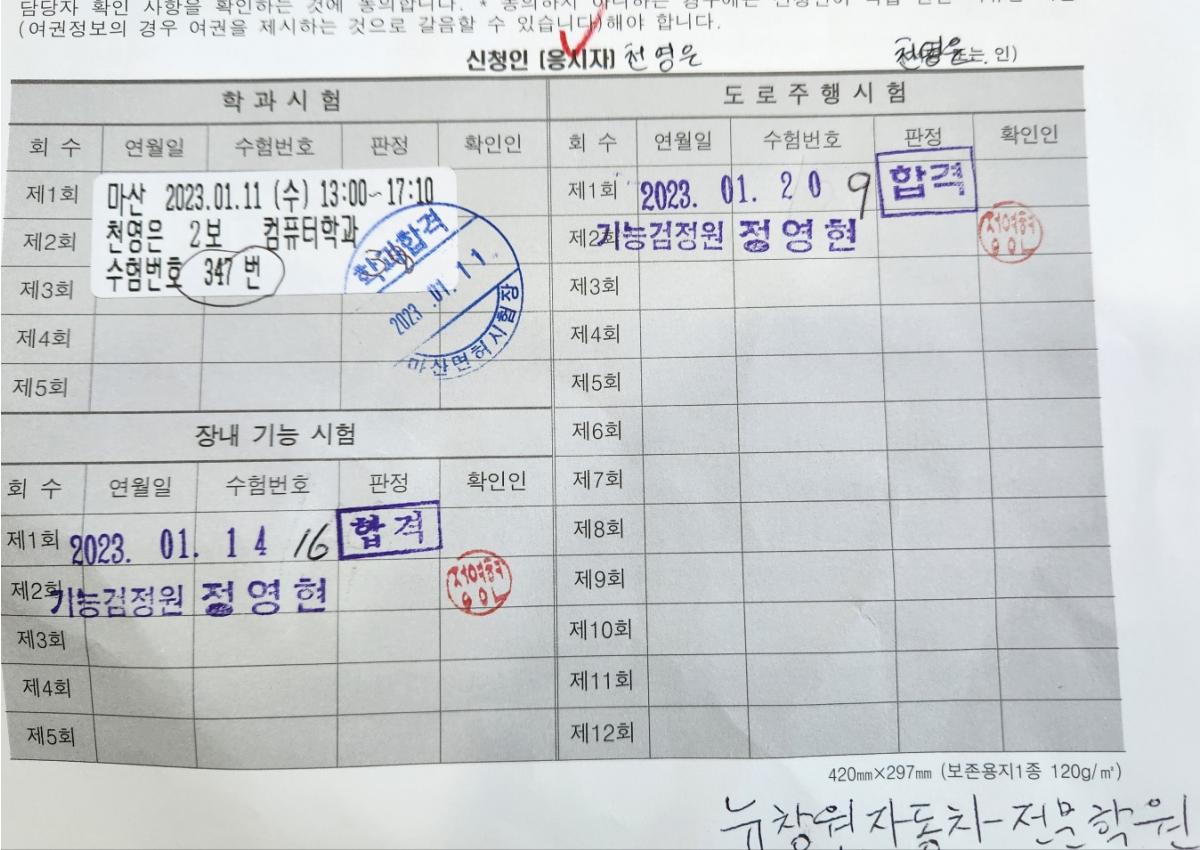 담당자 확인 사항을 확인하는 것에 동의합니다. * 동의하지 아니하는 경우에는 신청인이 직접 관련
(여권정보의 경우 여권을 제시하는 것으로 갈음할 수 있습니다)해야 합니다.
신청인 (응시자) 천영은 천영은 또는 인)
학과시험
회 수 연월일 수험번호 판정 확인인
제1회 마산 2023.01.11 (수) 13:00~17:10
제2회 천영은 2보 컴퓨터학과
제3회 수험번호 347 번
학과합격
2023 .01. 11
마산면허시험장
제4회
제5회
장내 기능 시험
회 수 연월일 수험번호 판정 확인인
제1회 2023. 01. 14 16 합격
제2회 기능검정원 정영현
제3회
제4회
제5회
도로주행시험
회 수 연월일 수험번호 판정 확인인
제1회 2023. 01. 20 9 합격
제2회 기능검정원 정영현
제3회
제4회
제5회
제6회
제7회
제8회
제9회
제10회
제11회
제12회
420㎜×297㎜ (보존용지1종 120g/㎡)
뉴창원자동차전문학원